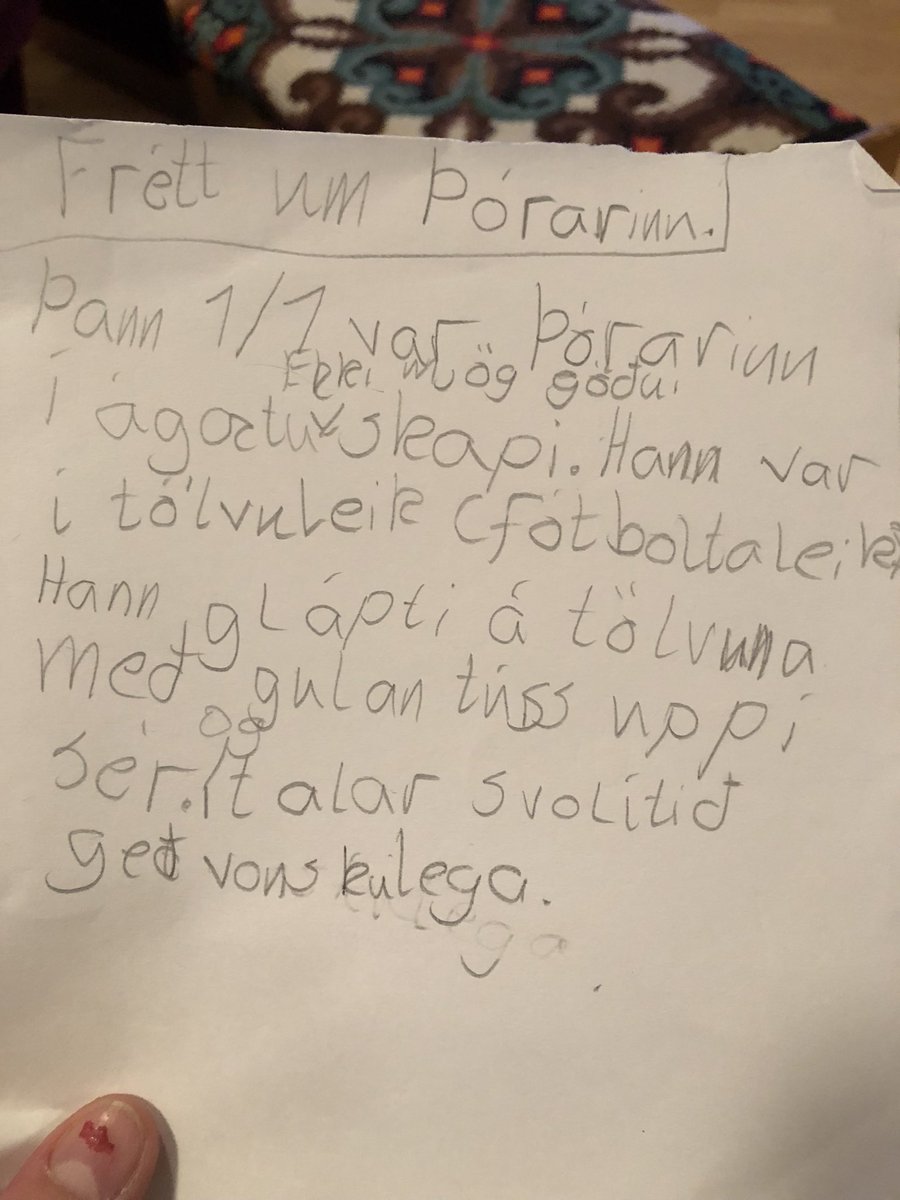 Frétt um Þórarinn.
Þann 1/1 var Þórarinn
Ekki mjög góðu.
í ágætu skapi. Hann var
í tölvuleik (fótboltaleik)
Hann glápti á tölvuna
með gulan túss uppí
og
sér. talar svolítið
geðvonskulega.